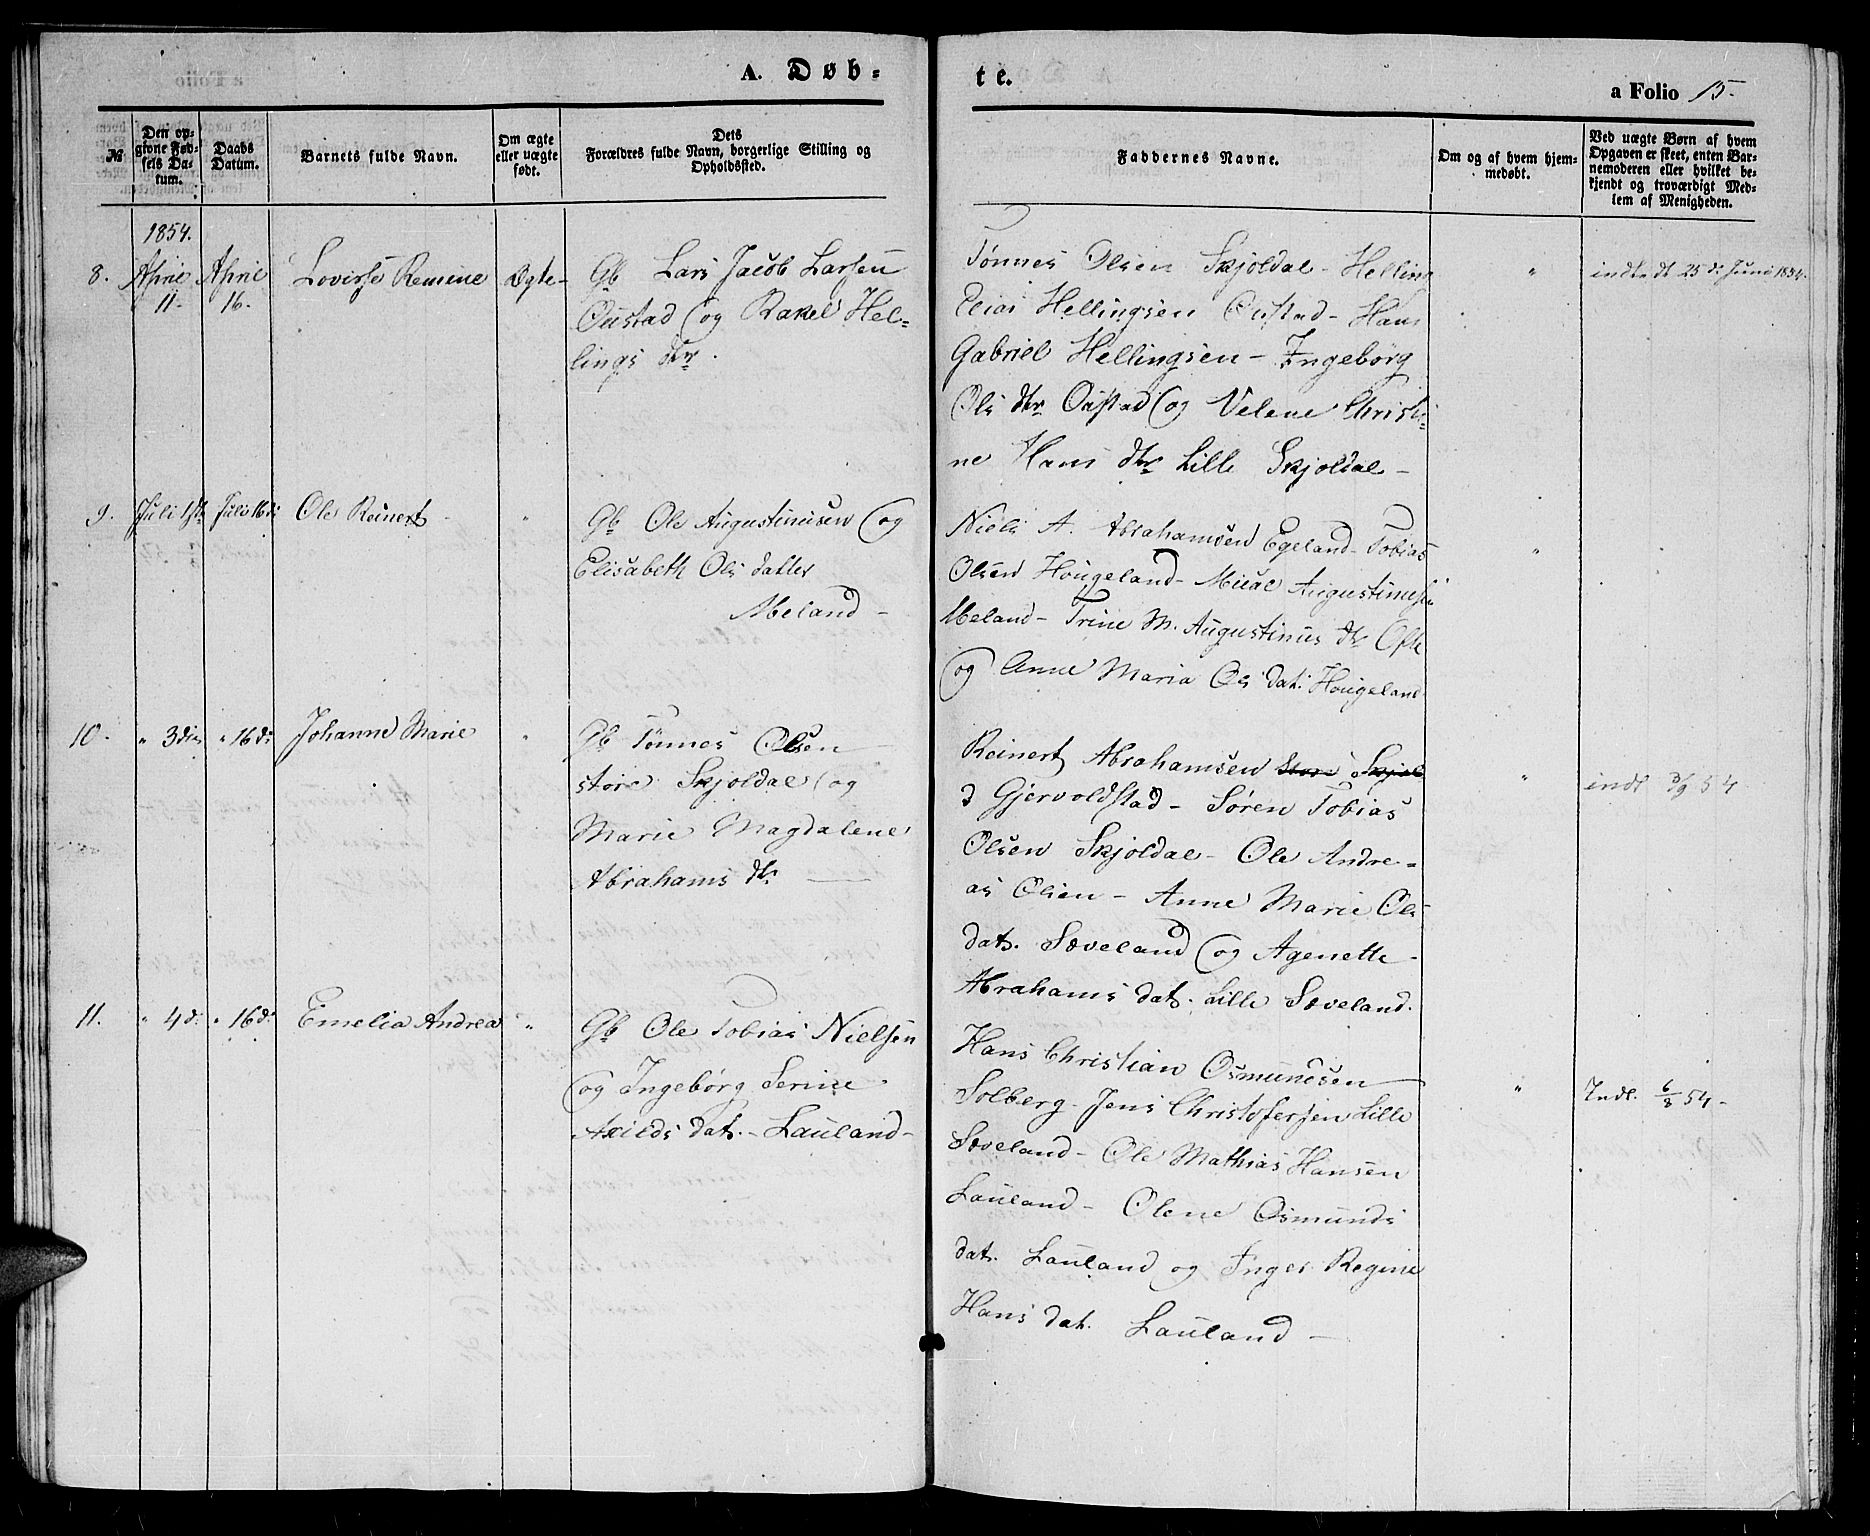 A. Døb-
te.
a Folio 15.
№
Den op-
givne Fød-
sels Da-
tum.
Daabs
Datum.
Barnets fulde Navn.
Om ægte
eller uægte
født.
Dets
Forældres fulde Navn, borgerlige Stilling og
Opholdssted.
Faddernes Navne.
Om og af hvem hjem-
medøbt.
Ved uægte Børn af hvem
Opgaven er skeet, enten Bar-
nemoderen eller hvilket be-
kjendt og troværdigt Med-
lem af Menigheden.
1854.
8. April
11-
April
16-
Lovisse Remene
Ægte-
Gb Lars Jacob Larsen
Oustad og Rakel Hel-
lings dtr.
Tønnes Olsen Skjoldal - Helling
Elias Hellingsen Oustad - Hans
Gabriel Hellingsen - Ingeborg
Ols dtr Oustad og Velene Christi-
ne Hans dtr Lille Skjoldal -
"
indtedt 25 d: Juni 1854.
9. Juli 1ste
Juli 16 d:
Ole Reinert
"
Gb Ole Augustinusen og
Elisabeth Ols datter
Abeland -
Niels A. Abrahamsen Egeland - Tobias
Olsen Hougeland - Mical Augustinusen
Abeland - Trine M. Augustinus dtr Ofte
og Anne Maria Ols dat. Hougeland
"
10. " 3die
" 16 d:
Johanne Marie
"
Gb Tønnes Olsen
store Skjoldal og
Marie Magdalene
Abrahams dtr
Reinert Abrahamsen Store Skjol
d Gjervoldstad - Søren Tobias
Olsen Skjoldal - Ole Andre-
as Olsen - Anne Marie Ols
dat. Søveland og Agenette
Abrahams dat. Lille Søveland.
"
indt 3/9 54
11. " 4 d:
" 16 d:
Emelia Andrea
"
Gb Ole Tobias Nielsen
og Ingebørg Serine
Axilds dat. - Lauland -
Hans Christian Osmundsen
Solberg - Jens Christofersen Lille
Søveland - Ole Mathias Hansen
Lauland - Olene Osmunds
dat. Lauland og Inger Regine
Hans dat. Lauland -
"
Indt. 6/8 54 -